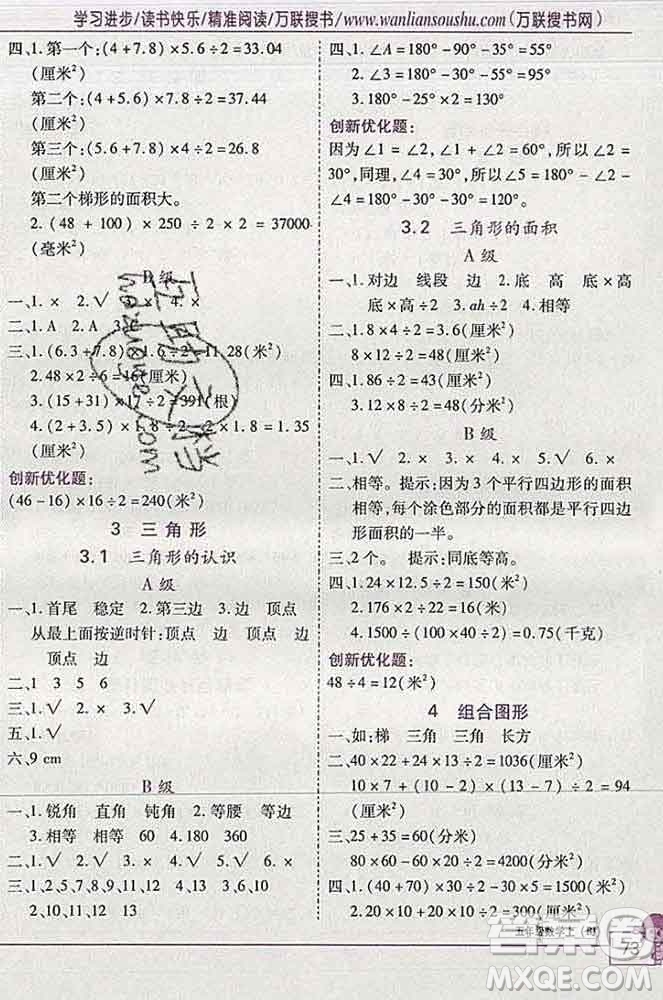 学习进步/读书快乐/精准阅读/万联搜书/www.wanliansoushu.com(万联搜书网)
四、1. 第一个:(4+5.6)×7.8÷2=33.04
(厘米²)
第二个:(4+5.6)×7.8÷2=37.44
(厘米²)
第三个:(5.6+7.8)×4÷2=26.8
(厘米²)
第二个梯形的面积大。
2. (48 + 100) × 250 ÷ 2 × 2 = 37000
(毫米²)
B 级
一、1. × 2. √ 3. × 4. ×
二、1. A 2. A 3.
三、1. (6.3+7.8)×1.6÷2=11.28(米²)
2. 48×2÷6=16(厘米)
3. (15+31)×17÷2=391(根)
4. (2 + 3.5) × 1 ÷ 2 - 2 × 1 = 1.35
(平方米²)
创新优化题:
(46-16)×16÷2=240(米²)
3 三角形
3.1 三角形的认识
A 级
一、1. 首尾 稳定 2. 第三边 3. 边 顶点
从最上面按逆时针:顶点 边 顶点 边
顶点 边
二、1 3 5 6
三、1. √ 2. × 3. √
五、1. √
六、9 cm
B 级
一、1. 锐角 直角 钝角 2. 等腰 等边
3. 相等 相等 60 4. 180 360
二、1. √ 2. √ 3. √ 4. × 5. √ 6. ×
三、1. 2、5、7、8、9、11 3、4、6、10
2. 10、11 12 13
四、1. ∠A=180°-90°-35°=55°
2. ∠B=180°-30°-55°=95°
3. 180°-25°×2=130°
创新优化题:
因为∠1=∠2,∠1+∠2=60°,所以∠2=
30°,同理,∠4=30°,所以∠5=180°-∠2-
∠4=180°-30°-30°=120°。
3.2 三角形的面积
A 级
一、1. 对边 线段 边 2. 底 高 底×高
底×高÷2 3. ah÷2 4. 相等
二、1. 8×4÷2=1.6(厘米²)
8×12÷2=48(厘米²)
四、1. 86÷2=43(厘米²)
3. 12×8÷2=48(分米²)
B 级
一、1. √ 2. × 3. × 4. √ 5. × 6. √
二、相等。 提示:因为3个平行四边形的面积
相等,每个涂色部分的面积都是平行四边
形面积的一半。
三、2个。 提示:同底等高。
四、1. 24×12.5÷2=150(米²)
2. 176×2÷22=16(米)
4. 1500÷(100×40÷2)=0.75(千克)
创新优化题:
48÷4=12(米²)
4 组合图形
一、如:梯 三角 三角 长方
二、40×22+(40-14)×12÷2=1036(厘米²)
10 × 7 + (12 - 10) × (13 - 7) ÷ 2 = 94
(厘米²)
三、25+35=60(分米)
80×60-20×60÷2=4200(分米²)
四、1. (40+70)×30÷2-30×15=1200(米²)
2. 20×10+(20-10×2)×10÷2=200(米²)
五年级数学上(BJ)
73
答案圈
MXQE.COM